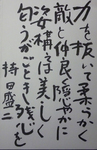 力を抜いて柔らかく
敵と仲良く穏やかに
姿構えは美しく
匂うがごとき残心を
持田盛二